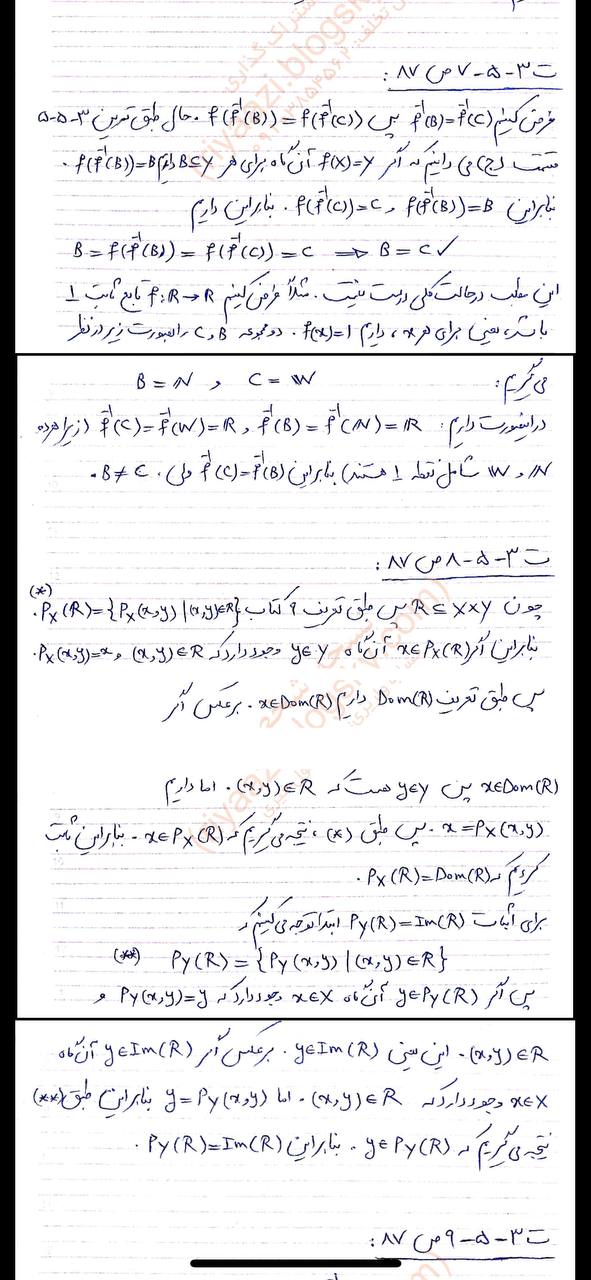 ت ۳-۵-۷ ص ۸۷ :
فرض کنیم f⁻¹(B)=f⁻¹(C) پس f(f⁻¹(B))=f(f⁻¹(C)). حال طبق تمرین ۳-۵-۵
قسمت (ج) می دانیم که اگر f(X)=Y آن گاه برای هر B⊆Y داریم f(f⁻¹(B))=B.
بنابراین f(f⁻¹(B))=B و f(f⁻¹(C))=C. بنابراین داریم
B = f(f⁻¹(B)) = f(f⁻¹(C)) = C ⟹ B = C ✓
این مطلب در حالت کلی درست نیست. مثلاً فرض کنیم f:R→R تابع ثابت 1
باشد، یعنی برای هر x، داریم f(x)=1. دو مجموعه B و C را بصورت زیر در نظر
می گیریم:
B = ℕ , C = W
در اینصورت داریم: f⁻¹(B)=f⁻¹(ℕ)=ℝ و f⁻¹(C)=f⁻¹(W)=ℝ (زیرا هردو
ℕ و W شامل نقطه 1 هستند) بنابراین f⁻¹(C)=f⁻¹(B) ولی B≠C.
ت ۳-۵-۸ ص ۸۷ :
چون R⊆X×Y پس طبق تعریف ۹ کتاب P_X(R)={P_X(x,y)|(x,y)∈R}. (*)
بنابراین اگر x∈P_X(R) آن گاه y∈Y وجود دارد که (x,y)∈R و P_X(x,y)=x.
پس طبق تعریف Dom(R) داریم x∈Dom(R). برعکس اگر
x∈Dom(R) پس y∈Y هست که (x,y)∈R. اما داریم
x=P_X(x,y). پس طبق (*)، نتیجه می گیریم که x∈P_X(R). بنابراین ثابت
کردیم که P_X(R)=Dom(R).
برای اثبات P_Y(R)=Im(R) ابتدا توجه می کنیم که
(**) P_Y(R)={P_Y(x,y)|(x,y)∈R}
پس اگر y∈P_Y(R) آن گاه x∈X وجود دارد که P_Y(x,y)=y و
(x,y)∈R. این یعنی y∈Im(R). برعکس اگر y∈Im(R) آن گاه
x∈X وجود دارد که (x,y)∈R. اما y=P_Y(x,y) بنابراین طبق (**)
نتیجه می گیریم که y∈P_Y(R). بنابراین P_Y(R)=Im(R).
ت ۳-۵-۹ ص ۸۷ :